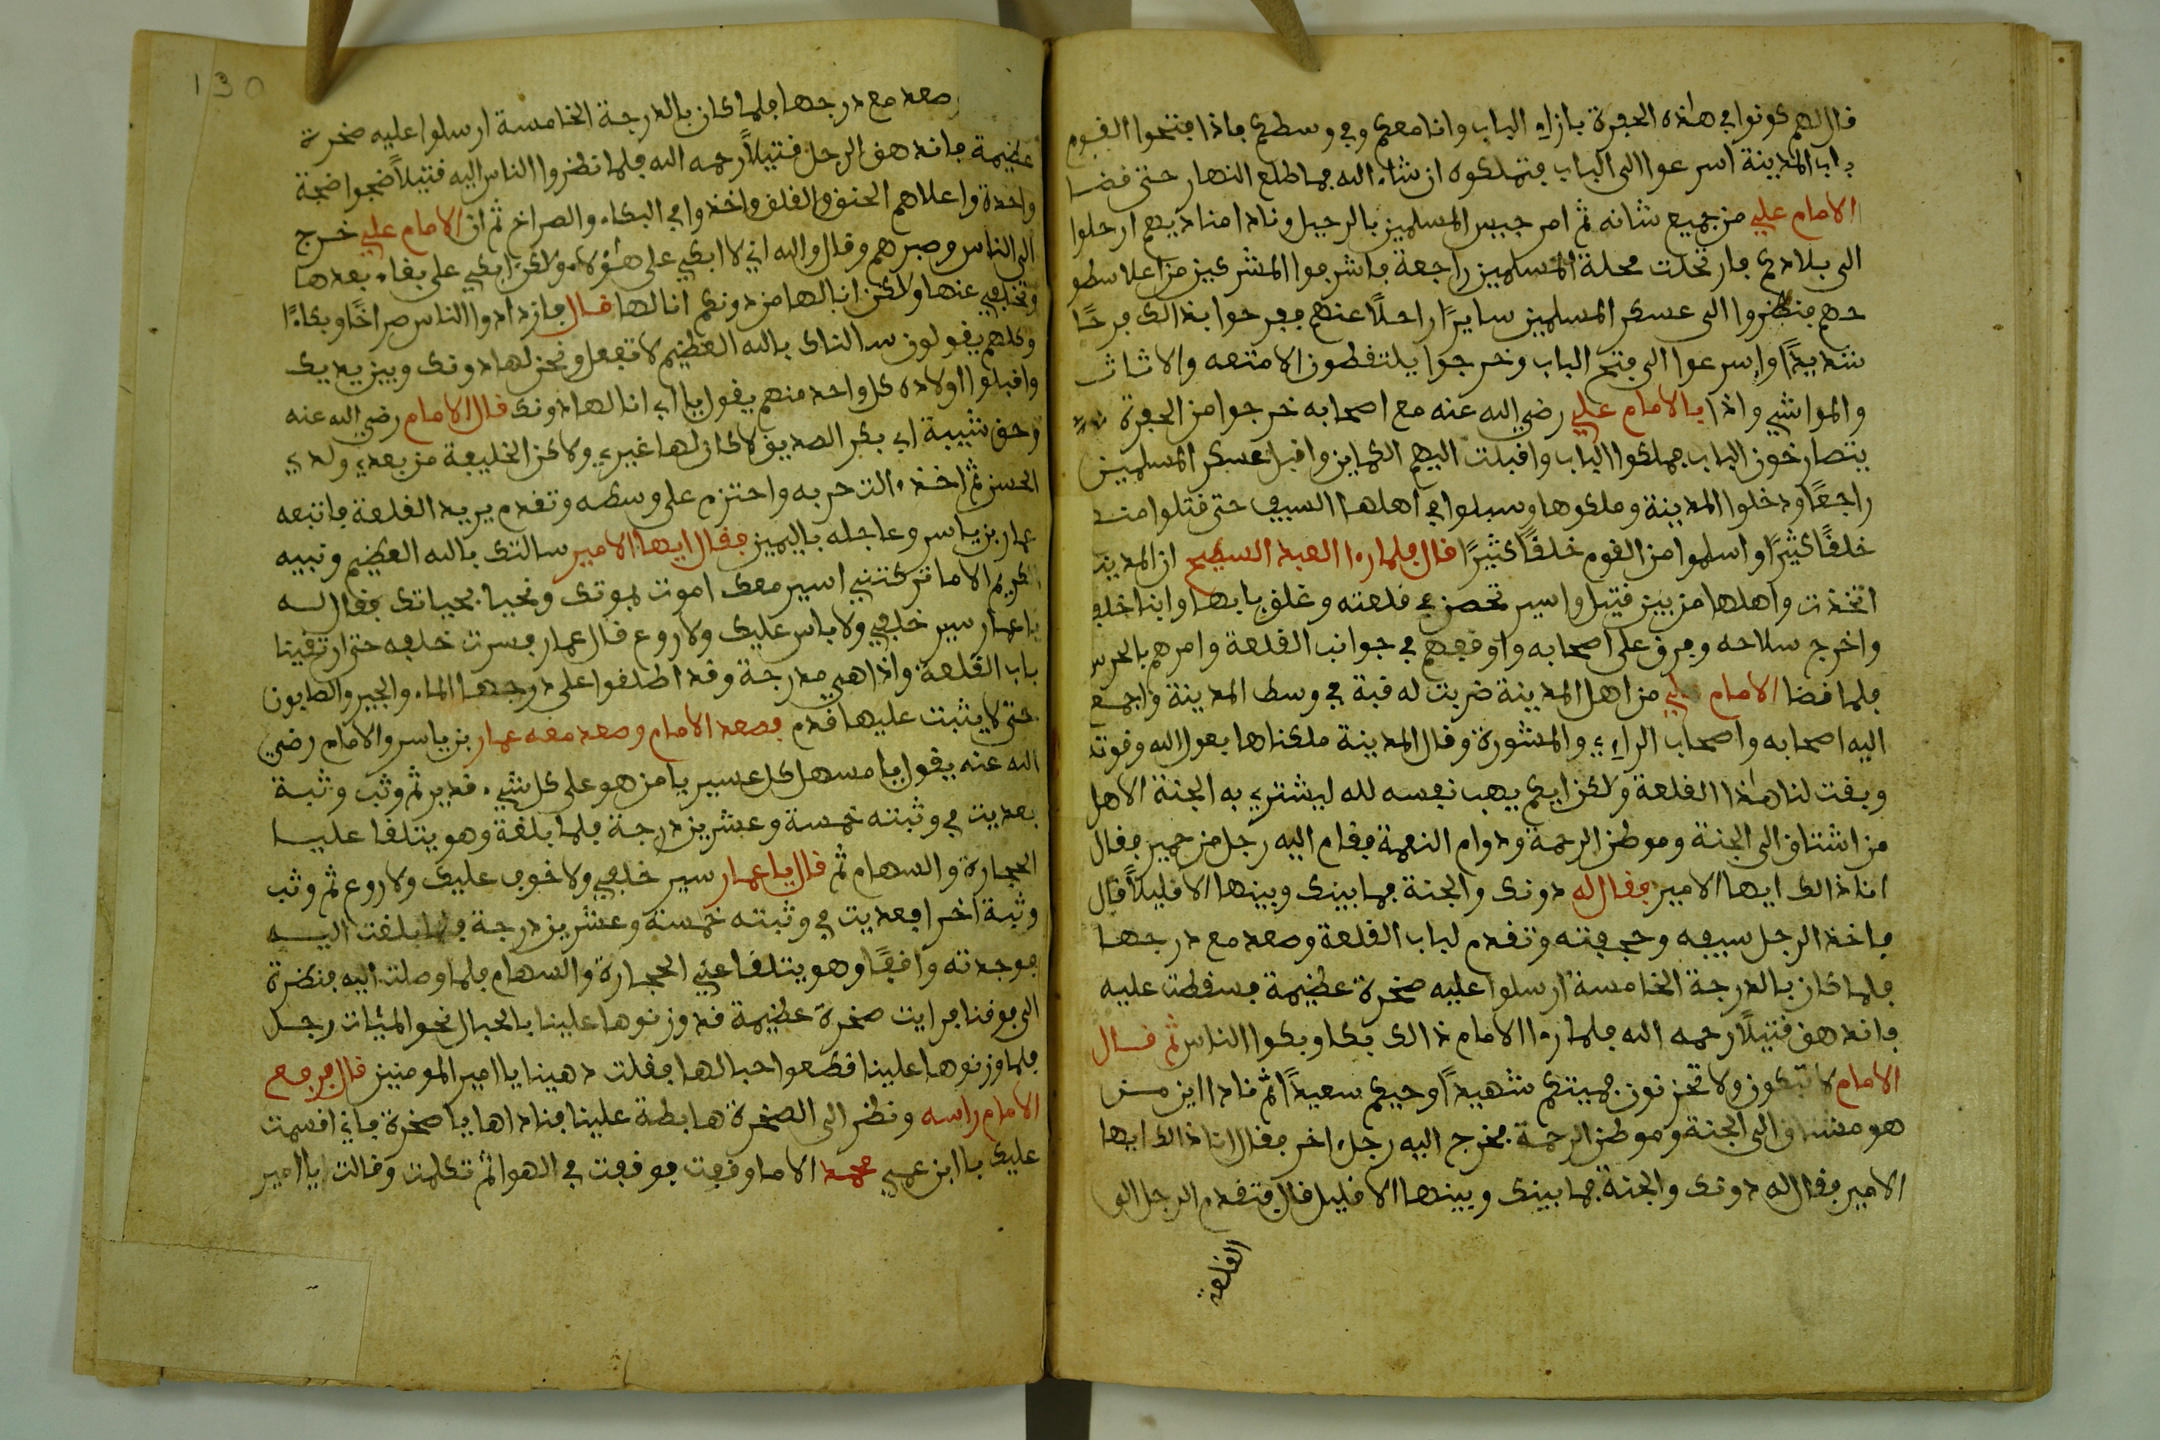 قال لهم كونوا في هذه الحفرة بازاء الباب وانا معكم وفي وسطكم فاذا فتحوا القوم
باب المدينة اسرعوا الى الباب فتملكوه ان شاء الله فما طلع النهار حتى قضا
الامام علي من جميع شانه ثم امر جيس المسلمين بالرحيل ونادا مناديهم ارحلوا
الى بلادكم فارتحلت محلة المسلمين راجعة فاشرفوا المشركين من اعلا سطو
حهم فنظروا الى عسكر المسلمين سايرًا راحلًا عنهم ففرحوا بذالك فرحًا
شديدًا واسرعوا الى فتح الباب وخرجوا يلتقطون الامتعه والاثاث
والمواشي واذا بالامام علي رضي الله عنه مع اصحابه خرجوا من الحفرة
يتصارخون الباب فملكوا الباب واقبلت اليهم الكماين واقبل عسكر المسلمين
راجعًا ودخلوا المدينة وملكوها وسبلوا في اهلها السيف حتى قتلوا منـ
خلقًا كثيرًا واسلموا من القوم خلقًا كثيرًا قال فلما راا العبد السطيح ان المدينـ
اتخذت واهلها من بين قتيل واسير تحصن في قلعته وغلق بابها وابنا خلفـ
واخرج سلاحه وفرق على اصحابه واوقفهم في جوانب القلعة وامرهم بالحرس
فلما قضا الامام علي من اهل المدينة ضربت له قبة في وسط المدينة واجمع
اليه اصحابه واصحاب الراي والمشورة وقال المدينة ملكناها بعون الله وقوته
وبقت لنا هذا القلعة ولاكن ايكم يهب نفسه لله ليشتري به الجنة الاهل
من اشتاق الى الجنة وموطن الرحمة ودوام النعمة فقام اليه رجل من حمير فقال
انا ذالك ايها الامير فقال له دونك والجنة فما بينك وبينها الا قليلًا قال
فاخذ الرجل سيفه وحجفته وتقدم لباب القلعة وصعد مع درجها
فلما كان بالدرجة الخامسة ارسلوا عليه صخرة عظيمة فسقطت عليه
فاندهق قتيلًا رحمه الله فلما راا الامام ذالك بكا وبكوا الناس ثم قال
الامام لا تبكون ولا تحزنون فميتكم شهيدًا وحيكم سعيدًا ثم نادا اين من
هو مشتاق الى الجنة وموطن الرحمة فخرج اليه رجل اخر فقال انا ذالك ايها
الامير فقال له دونك والجنة فما بينك وبينها الا قليل قال فتقدم الرجل الى
القلعة
130
وصعد مع درجها فلما كان بالدرجة الخامسة ارسلوا عليه صخرة
عظيمة فاندهق الرجل قتيلًا رحمه الله فلما نظروا الناس اليه قتيلًا ضجوا ضجة
واحدة واعلاهم الحنق والقلق واخذوا في البكاء والصراخ ثم ان الامام علي خرج
الى الناس وصبرهم وقال والله اني لا ابكي على هؤلاء ولاكن ابكي على بقاء بعدها
وتخلفي عنها ولاكن انا لها من دونكم انا لها قال فازدادوا الناس صراخًا وبكاءً
وكلهم يقولون سالناك بالله العظيم لا تفعل ونحن لها دونك وبين يديك
واقبلوا اولاده كل واحد منهم يقول يا ابي انا لها دونك قال الامام رضي الله عنه
وحق شيبة ابي بكر الصديق لا كان لها غيري ولاكن الخليفة من بعدي ولدي
الحسن ثم اخذ االت حربه واحتزم على وسطه وتقدم يريد القلعة فاتبعه
عمار بن ياسر وعاجله باليمين فقال ايها الامير سالتك بالله العظيم ونبيه
الكريم الا ما تركتني اسير معك اموت بموتك ونحيا بحياتك فقال له
يا عمار سير خلفي ولا باس عليك ولا روع قال عمار فسرت خلفه حتى ارتقينا
باب القلعة واذا هي مدرجة وقد اطلقوا على درجها الماء والجير والصابون
حتى لا يثبت عليها قدم فصعد الامام وصعد معه عمار بن ياسر والامام رضي
الله عنه يقول يا مسهل كل عسير يا من هو على كل شيء قدير ثم وثب وثبة
فعديت في وثبته خمسة وعشرين درجة فلما بلغة وهو يتلقا عليـا
الحجارة والسهام ثم قال يا عمار سير خلفي ولا خوف عليك ولا روع ثم وثب
وثبة اخرا فعديت في وثبته خمسة وعشرين درجة فلما بلغت اليه
فوجدته واقفًا وهو يتلقا عني الحجارة والسهام فلما وصلت اليه فنضرة
الى فوقنا فرايت صخرة عظيمة قد وزنوها علينا بالحبال نحو المئات رجل
فلما وزنوها علينا قطعوا حبالها فقلت دهينا يا امير المومنين قال فرفع
الامام راسه ونظر الى الصخرة هابطة علينا فناداها يا صخرة فاني اقسمت
عليك بابن عمي محمد الا ما وقفت فوقفت في الهوا ثم تكلمت وقالت يا امير